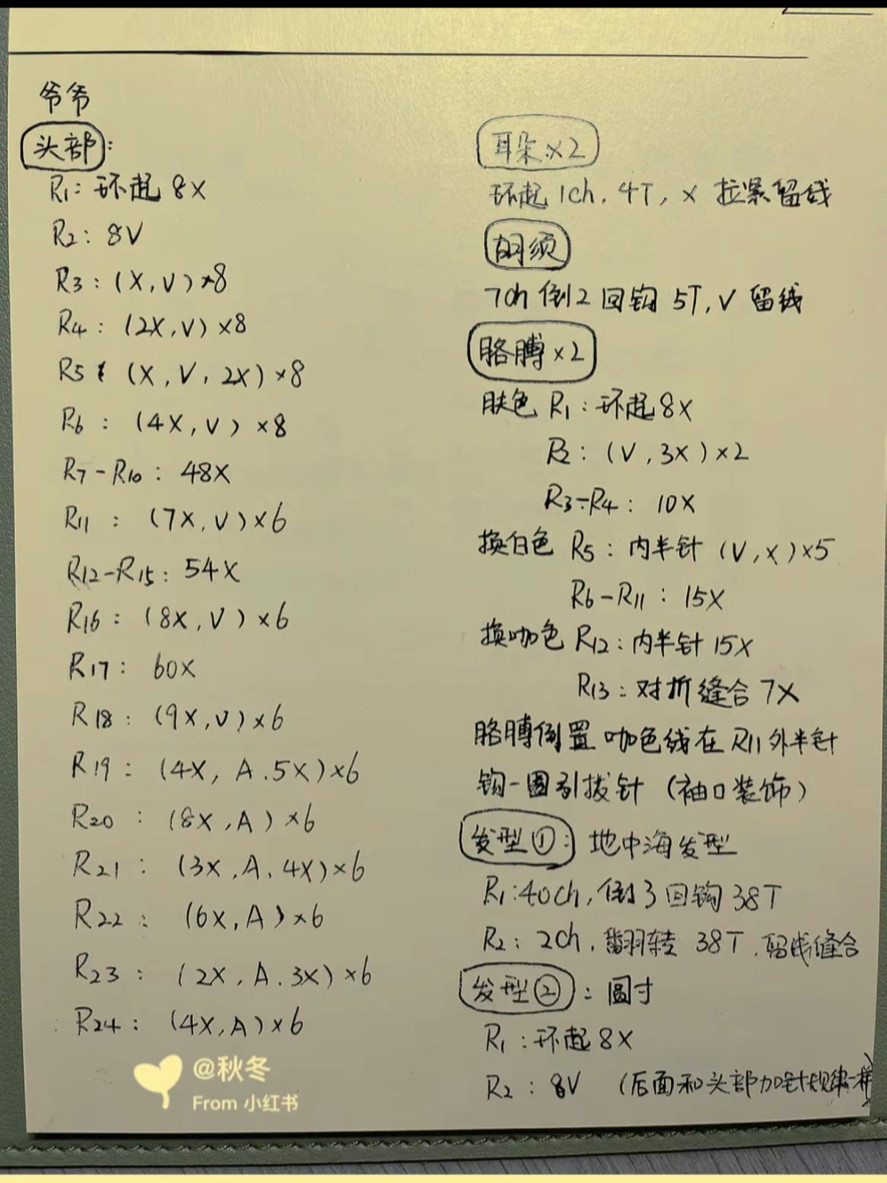 爷爷
头部:
R1: 环起 8X
R2: 8V
R3: (X,V)×8
R4: (2X,V)×8
R5: (X,V,2X)×8
R6: (4X,V)×8
R7-R10: 48X
R11: (7X,V)×6
R12-R15: 54X
R16: (8X,V)×6
R17: 60X
R18: (9X,V)×6
R19: (4X,A.5X)×6
R20: (8X,A)×6
R21: (3X,A.4X)×6
R22: (6X,A)×6
R23: (2X,A.3X)×6
R24: (4X,A)×6
耳朵×2
环起 1ch, 4T, X 拉紧留线
胡须
7ch 倒2回钩 5T, V 留线
胳膊×2
肤色 R1: 环起 8X
R2: (V,3X)×2
R3-R4: 10X
换白色 R5: 内半针 (V,X)×5
R6-R11: 15X
换咖色 R12: 内半针 15X
R13: 对折缝合 7X
胳膊倒置 咖色线在 R11外半针
钩一圈引拔针 (袖口装饰)
发型①: 地中海发型
R1: 40ch, 倒3回钩 38T
R2: 2ch, 翻转 38T, 留线缝合
发型②: 圆寸
R1: 环起 8X
R2: 8V (后面和头部加针规律一样)
@秋冬
From 小红书